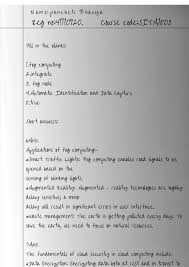 Name:pancheti Bhavya
Reg no:41110920. Course code:SITA1603
Fill in the blanks:
1.Fog computing
2.integrate
3. Fog node
4.Automatic Identification and Data Capture
5.true
Short answers:
Applications of Fog computing:-
Smart Traffic Lights: Fog computing enables road signals to be
opened based on the
sensing of blinking lights.
Augmented Reality: Augmented - reality technologies are highly
delay sensitive; a minor
delay will result in significant errors in user interface.
Waste management: The earth is getting polluted every days. To
save the earth, we need to focus on natural resources.
The fundamentals of cloud security in cloud computing include:
Data Encryption: Encrypting data both at rest and in transit to